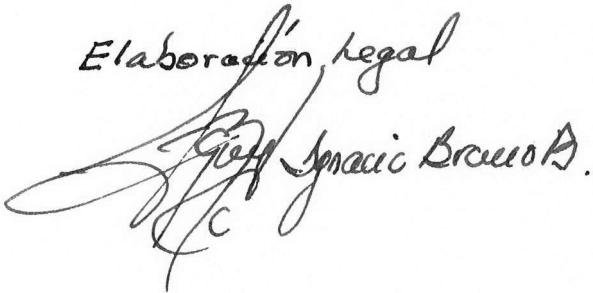 Elaboración Legal
Ignacio Bravo B.
C